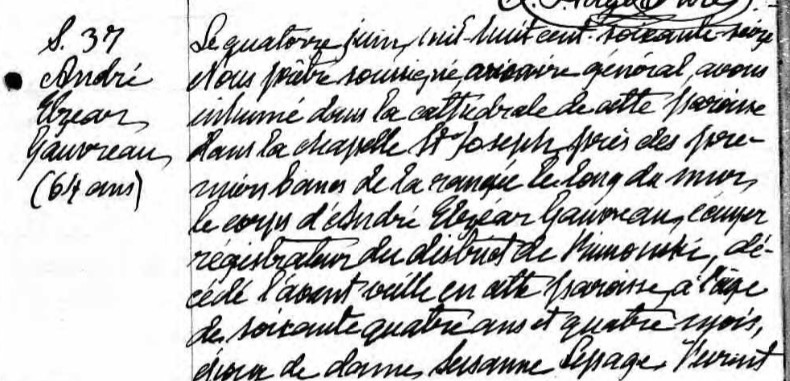 S. 37
André
Elzéar
Gauvreau
(64 ans)
Le quatorze juin, mil-huit cent-soixante-seize
Nous prêtre soussigné, vicaire général, avons
inhumé dans la cathédrale de cette paroisse
dans la chapelle St Joseph, près des pre-
miers bancs de la rangée le long du mur,
le corps d'André Elzéar Gauvreau, écuyer
régistrateur du district de Rimouski, dé-
cédé l'avant veille en cette paroisse, à l'âge
de soixante quatre ans et quatre mois,
époux de dame Susanne Lepage. Furent